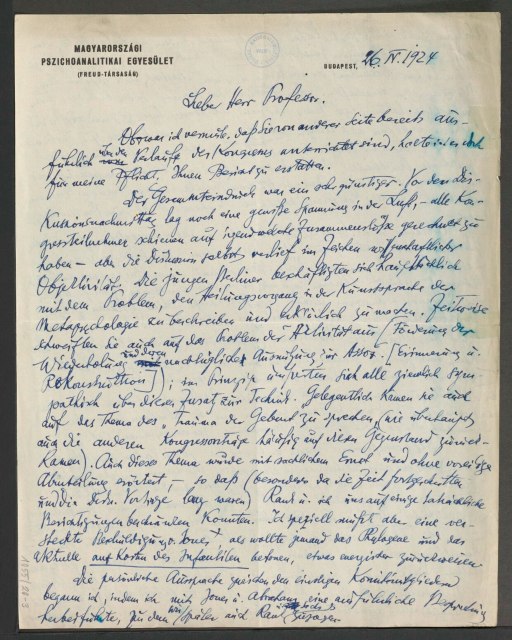 MAGYARORSZÁGI
PSZICHOANALITIKAI EGYESÜLET
(FREUD-TÁRSASÁG)
BUDAPEST, 26. IV. 1924
Lieber Herr Professor.
Obzwar ich vermute, daß Sie von anderer Seite bereits aus-
führlich über den Verlauf des Kongresses unterrichtet sind, halte ich es doch
für meine Pflicht, Ihnen Bericht zu erstatten.
Der Gesamteindruck war ein sehr günstiger. Vor dem Dis-
kussionsnachmittag lag noch eine gewisse Spannung in der Luft; – alle Kon-
gressteilnehmer schienen auf irgendwelche Zusammenstöße gerechnet zu
haben – aber die Diskussion selbst verlief im Zeichen wissenschaftlicher
Objektivität. Die jungen Berliner beschäftigten sich hauptsächlich
mit dem Problem, den Heilungsvorgang in der Kunstsprache der
Metapsychologie zu beschreiben und erklärlich zu machen. Zeitweise
streiften sie auch auf das Problem der Aktivität aus (Förderung der
Wiederholung und deren nachträgliche Ausnützung zur Assoz. [Erinnerung u.
Rekonstruktion]); im Prinzip äußerten sich alle ziemlich sym-
pathisch über diesen Zusatz zur Technik. Gelegentlich kamen sie auch
auf das Thema des „Trauma der Geburt zu sprechen (wie überhaupt
auch die anderen Kongressvorträge häufig auf diesen Gegenstand zurück-
kamen). Auch dieses Thema wurde mit sachlichem Ernst und ohne voreilige
Aburteilung erörtert – so daß (besonders da die Zeit fortgeschritten
und die Vorträge lang waren) Rank u. ich uns auf einige tatsächliche
Berichtigungen beschränken konnten. Ich speziell mußte aber eine ver-
steckte Beschuldigung Jones', als wollte jemand das Phylogene und das
Aktuelle auf Kosten des Infantilen betonen, etwas energischer zurückweisen
Die persönliche Aussprache zwischen den einstigen Komitémitgliedern
begann ich, indem ich mit Jones u. Abraham eine ausführliche Besprechung
herbeiführte, zu der wir später auch Rank
1055/24-3